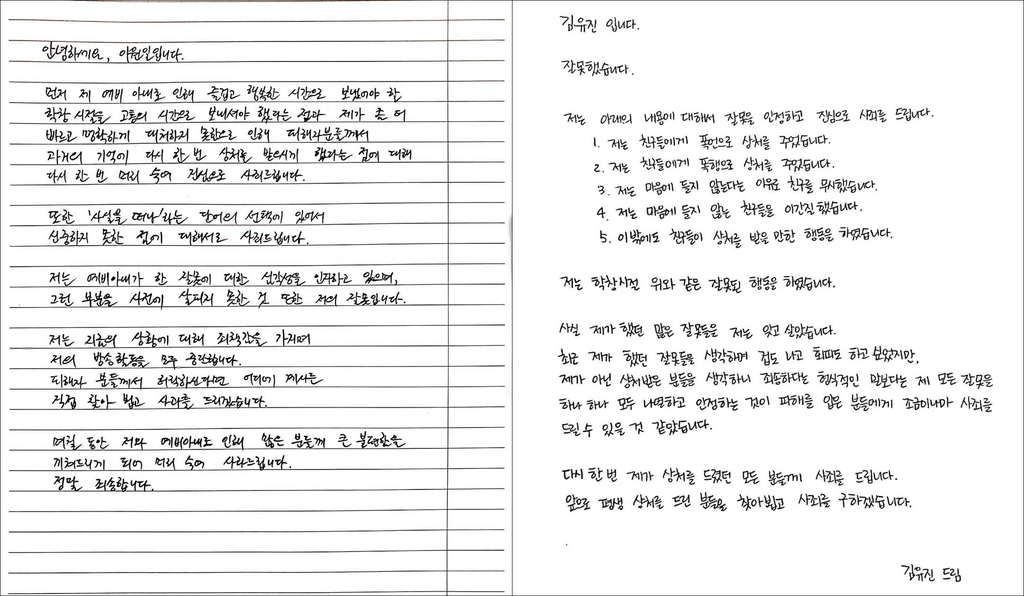 안녕하세요, 이원일입니다.
먼저 제 예비 아내로 인해 즐겁고 행복한 시간으로 보냈어야 할
학창 시절을 고통의 시간으로 보내셔야 했다는 점과 제가 좀 더
빠르고 명확하게 대처하지 못함으로 인해 피해자분들께서
과거의 기억에 다시 한 번 상처를 받으시게 했다는 점에 대해
다시 한 번 머리 숙여 진심으로 사죄드립니다.
또한 '사실을 떠나'라는 단어의 선택에 있어서
신중하지 못한 점에 대해서도 사죄드립니다.
저는 예비아내가 한 잘못에 대한 심각성을 인지하고 있으며,
그런 부분을 사전에 살피지 못한 것 또한 저의 잘못입니다.
저는 지금의 상황에 대해 죄책감을 가지며
저의 방송활동을 모두 중단합니다.
피해자 분들께서 허락하신다면 어디에 계시든
직접 찾아 뵙고 사죄를 드리겠습니다.
며칠 동안 저와 예비아내로 인해 많은 분들께 큰 불편함을
끼쳐드리게 되어 머리 숙여 사과드립니다.
정말 죄송합니다.
김유진 입니다.
잘못했습니다.
저는 아래의 내용에 대해서 잘못을 인정하고 진심으로 사죄를 드립니다.
1. 저는 친구들에게 폭언으로 상처를 주었습니다.
2. 저는 친구들에게 폭행으로 상처를 주었습니다.
3. 저는 마음에 들지 않는다는 이유로 친구를 무시했습니다.
4. 저는 마음에 들지 않는 친구들을 이간질 했습니다.
5. 이 밖에도 친구들이 상처를 받을 만한 행동을 하였습니다.
저는 학창시절 위와 같은 잘못된 행동을 하였습니다.
사실 제가 했던 많은 잘못들을 저는 잊고 살았습니다.
최근 제가 했던 잘못들을 생각하며 겁도 나고 회피도 하고 싶었지만,
제가 아닌 상처받은 분들을 생각하니 죄송하다는 형식적인 말보다는 제 모든 잘못을
하나 하나 모두 나열하고 인정하는 것이 피해를 입은 분들에게 조금이나마 사죄를
드릴 수 있을 것 같았습니다.
다시 한 번 제가 상처를 드렸던 모든 분들께 사죄를 드립니다.
앞으로 평생 상처를 드린 분들을 찾아뵙고 사죄를 구하겠습니다.
김유진 드림